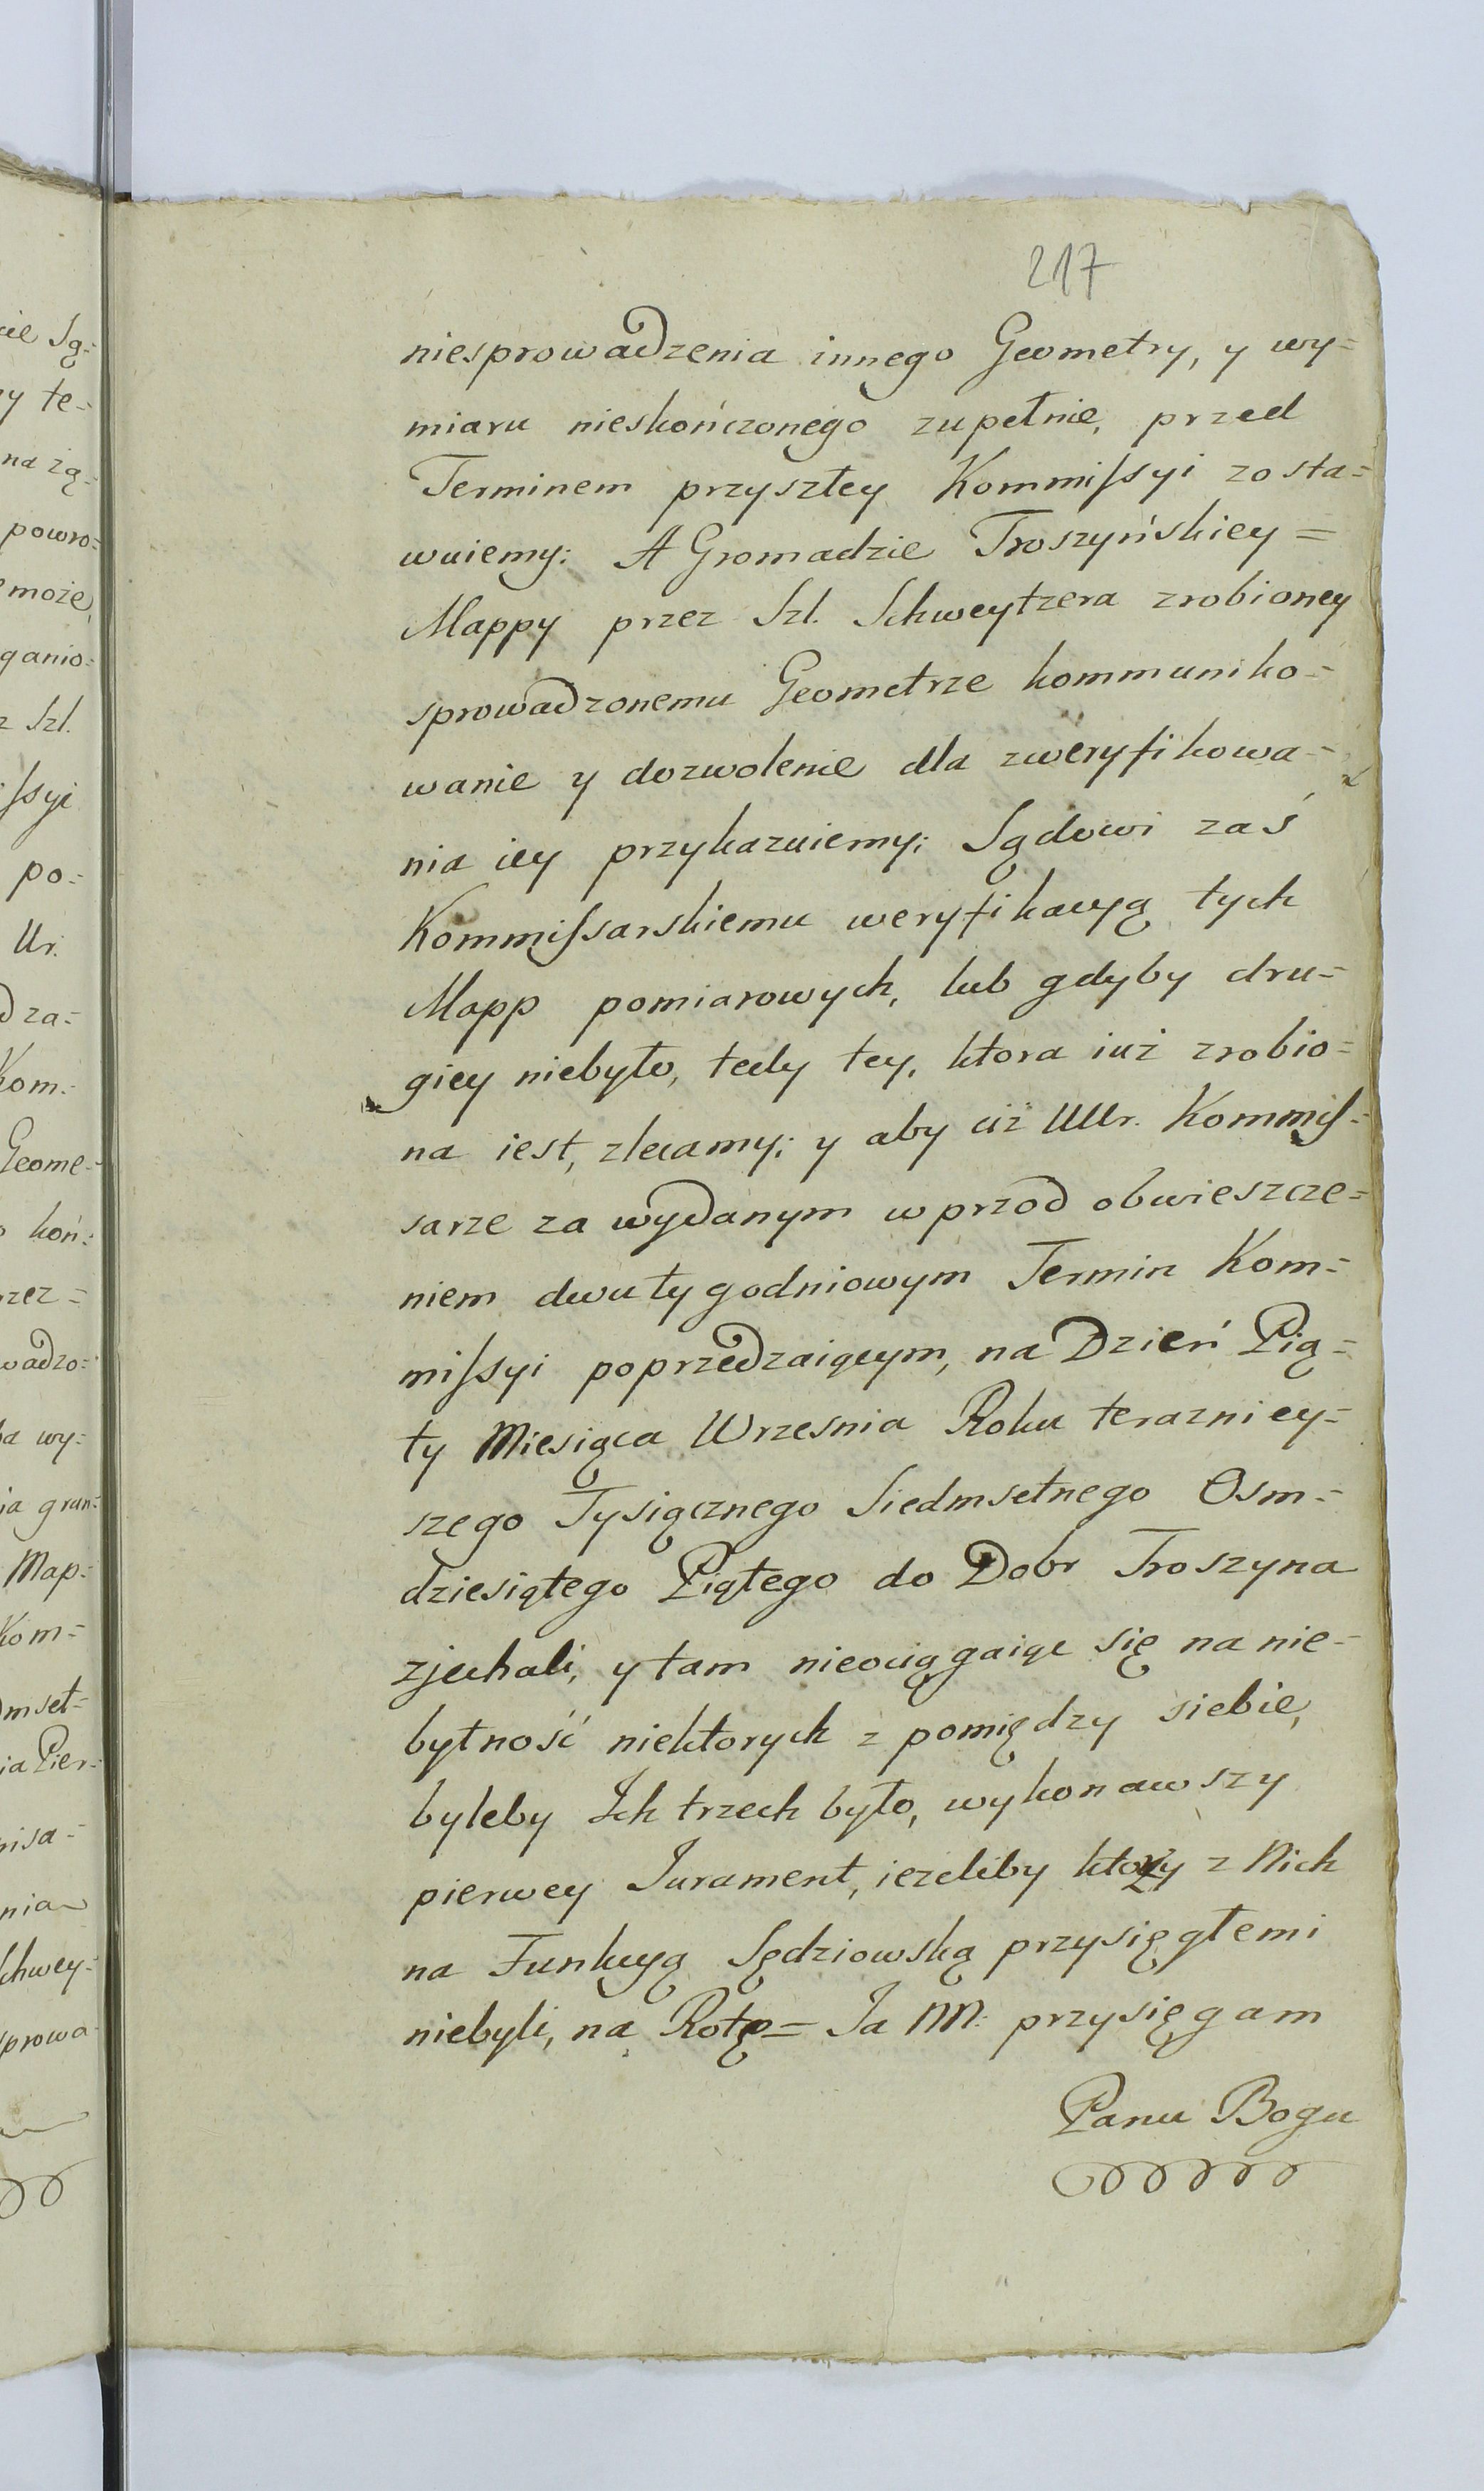 217
niesprowadzenia innego Geometry, y wy=
miaru nieskończonego zupełnie, przed
Terminem przyszłey Kommiſsyi zosta=
wuiemy: A Gromadzie Troszyńskiey=
Mappy przez Szl. Schweytzera zrobioney
sprowadzonemu Geometrze kommuniko=
wanie y dozwolenie dla zweryfikowa=
nia iey przykazuiemy; Sądowi zaś
Kommiſsarskiemu weryfikacyą tych
Mapp pomiarowych, lub gdyby dru=
giey niebyło, tedy tey, ktora iuż zrobio=
na iest, zlecamy; y aby ciż UUr. Kommiſ=
sarze za wydanym wprzod obwieszcze=
niem dwutygodniowym Termin Kom=
miſsyi poprzedzaiącym, na Dzień Pią=
ty Miesiąca Wrzesnia Roku terazniey=
szego Tysiącznego Siedmsetnego Osm=
dziesiątego Piątego do Dobr Troszyna
zjechali, y tam nieociągaiąc się na nie=
bytność niektorych z pomiędzy siebie,
byleby Ich trzech było, wykonawszy
pierwey Jurament, iezeliby ktorzy z Nich
na Funkcyą Sędziowską przysięgłemi
niebyli, na Rotę= Ja NN: przysięgam
Panu Bogu
cie Są=
ey te=
na żą=
powro=
może,
ganio=
z Szl.
iſsyi
po=
Ur.
dza=
Kom=
Geome=
koń=
rzez=
wadzo=
ba wy=
ia gran=
Map=
Kom=
dmset=
ia Pier=
misa=
nia
Schwey=
sprowa